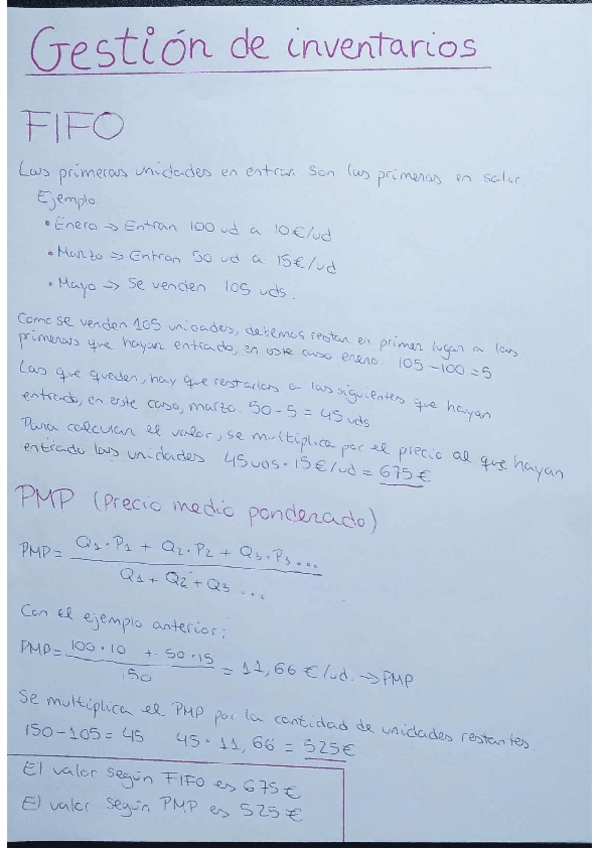 Gestión de inventarios
FIFO
Las primeras unidades en entrar son las primeras en salir.
Ejemplo
• Enero → Entran 100 ud a 10€/ud
• Marzo → Entran 50 ud a 15€/ud
• Mayo → Se venden 105 uds.
Como se venden 105 unidades, debemos restar en primer lugar a las
primeras que hayan entrado, en este caso enero. 105 - 100 = 5
Las que queden, hay que restarlas a las siguientes que hayan
entrado, en este caso, marzo. 50 - 5 = 45 uds
Para calcular el valor, se multiplica por el precio al que hayan
entrado las unidades 45 uds · 15€/ud = 675€
PMP (Precio medio ponderado)
PMP = Q1·P1 + Q2·P2 + Q3·P3 ...
Q1 + Q2 + Q3 ...
Con el ejemplo anterior:
PMP = 100·10 + 50·15 = 11,66 €/ud. → PMP
150
Se multiplica el PMP por la cantidad de unidades restantes.
150 - 105 = 45 45 · 11,66 = 525€
El valor según FIFO es 675€
El valor según PMP es 525€